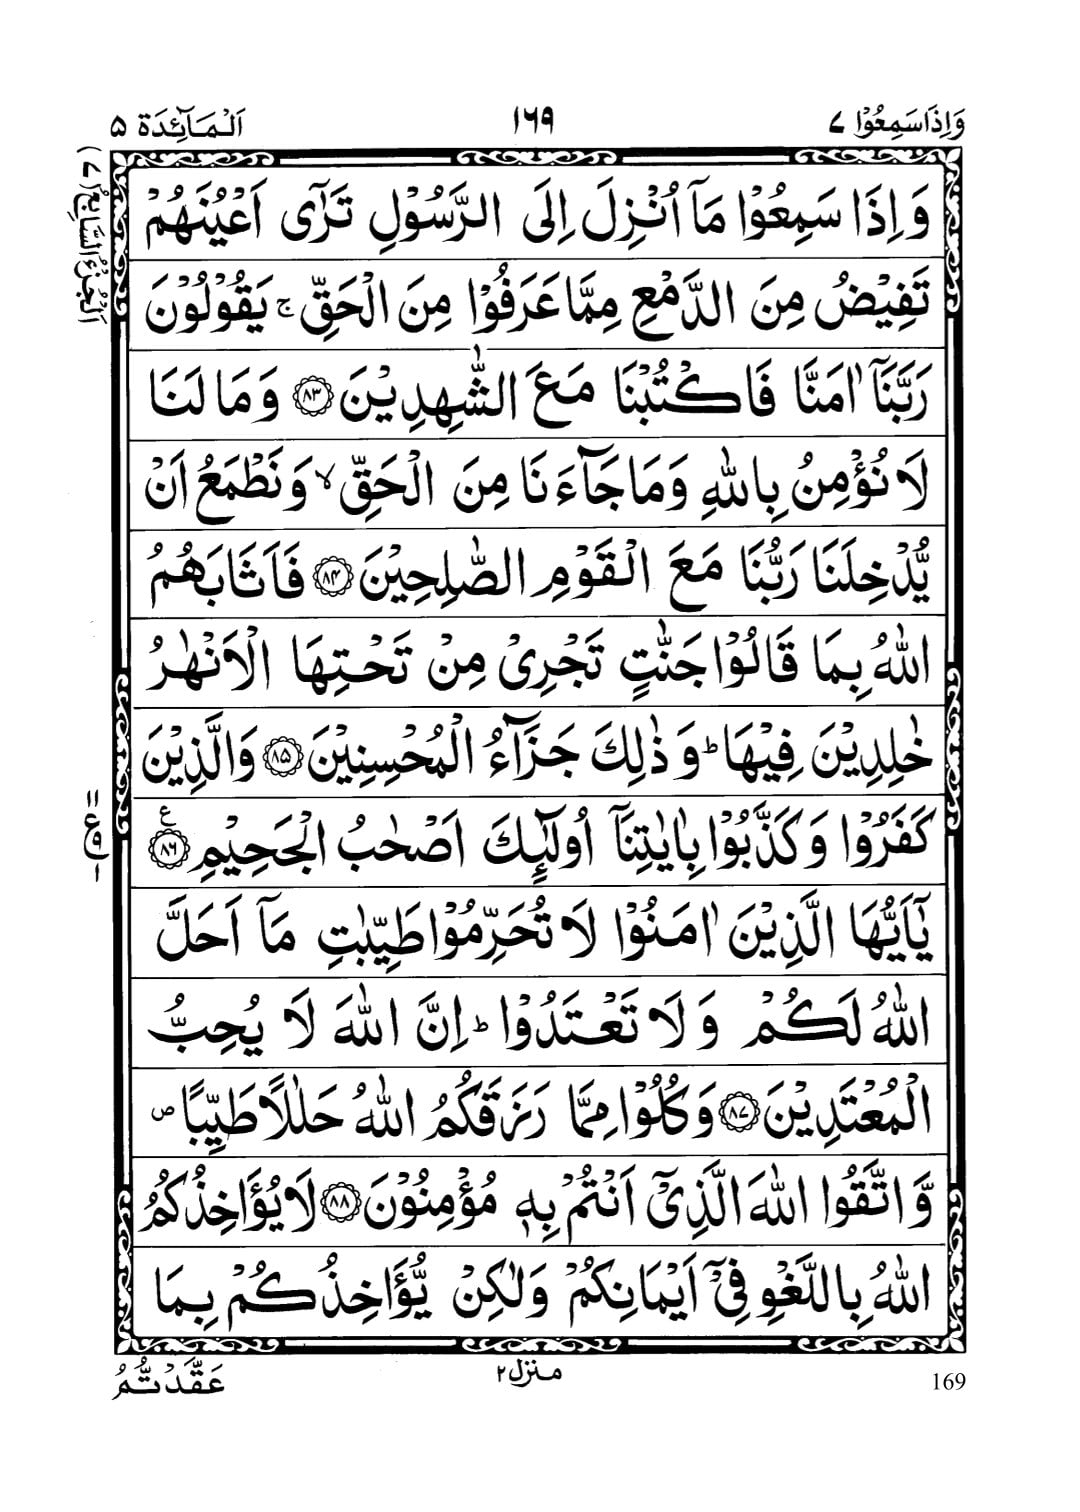 وَاِذَا سَمِعُوْا ٧
١٦٩
اَلْمَآئِدَة ٥
اَلْجُزْءُ السَّابِعُ (٧)
وَاِذَا سَمِعُوْا مَآ اُنْزِلَ اِلَى الرَّسُوْلِ تَرٰٓى اَعْيُنَهُمْ
تَفِيْضُ مِنَ الدَّمْعِ مِمَّا عَرَفُوْا مِنَ الْحَقِّ ۚ يَقُوْلُوْنَ
رَبَّنَآ اٰمَنَّا فَاكْتُبْنَا مَعَ الشّٰهِدِيْنَ ﴿٨٣﴾ وَمَا لَنَا
لَا نُؤْمِنُ بِاللّٰهِ وَمَا جَآءَنَا مِنَ الْحَقِّ ۙ وَنَطْمَعُ اَنْ
يُّدْخِلَنَا رَبُّنَا مَعَ الْقَوْمِ الصّٰلِحِيْنَ ﴿٨٤﴾ فَاَثَابَهُمُ
اللّٰهُ بِمَا قَالُوْا جَنّٰتٍ تَجْرِىْ مِنْ تَحْتِهَا الْاَنْهٰرُ
خٰلِدِيْنَ فِيْهَا ؕ وَذٰلِكَ جَزَآءُ الْمُحْسِنِيْنَ ﴿٨٥﴾ وَالَّذِيْنَ
كَفَرُوْا وَكَذَّبُوْا بِاٰيٰتِنَآ اُولٰٓئِكَ اَصْحٰبُ الْجَحِيْمِ ﴿٨٦﴾ ع
١١
ع
١
يٰٓاَيُّهَا الَّذِيْنَ اٰمَنُوْا لَا تُحَرِّمُوْا طَيِّبٰتِ مَآ اَحَلَّ
اللّٰهُ لَكُمْ وَلَا تَعْتَدُوْا ؕ اِنَّ اللّٰهَ لَا يُحِبُّ
الْمُعْتَدِيْنَ ﴿٨٧﴾ وَكُلُوْا مِمَّا رَزَقَكُمُ اللّٰهُ حَلٰلًا طَيِّبًا ص
وَّاتَّقُوا اللّٰهَ الَّذِىْٓ اَنْتُمْ بِهٖ مُؤْمِنُوْنَ ﴿٨٨﴾ لَا يُؤَاخِذُكُمُ
اللّٰهُ بِاللَّغْوِ فِىْٓ اَيْمَانِكُمْ وَلٰكِنْ يُّؤَاخِذُكُمْ بِمَا
عَقَّدْتُّمُ
منزل ٢
169